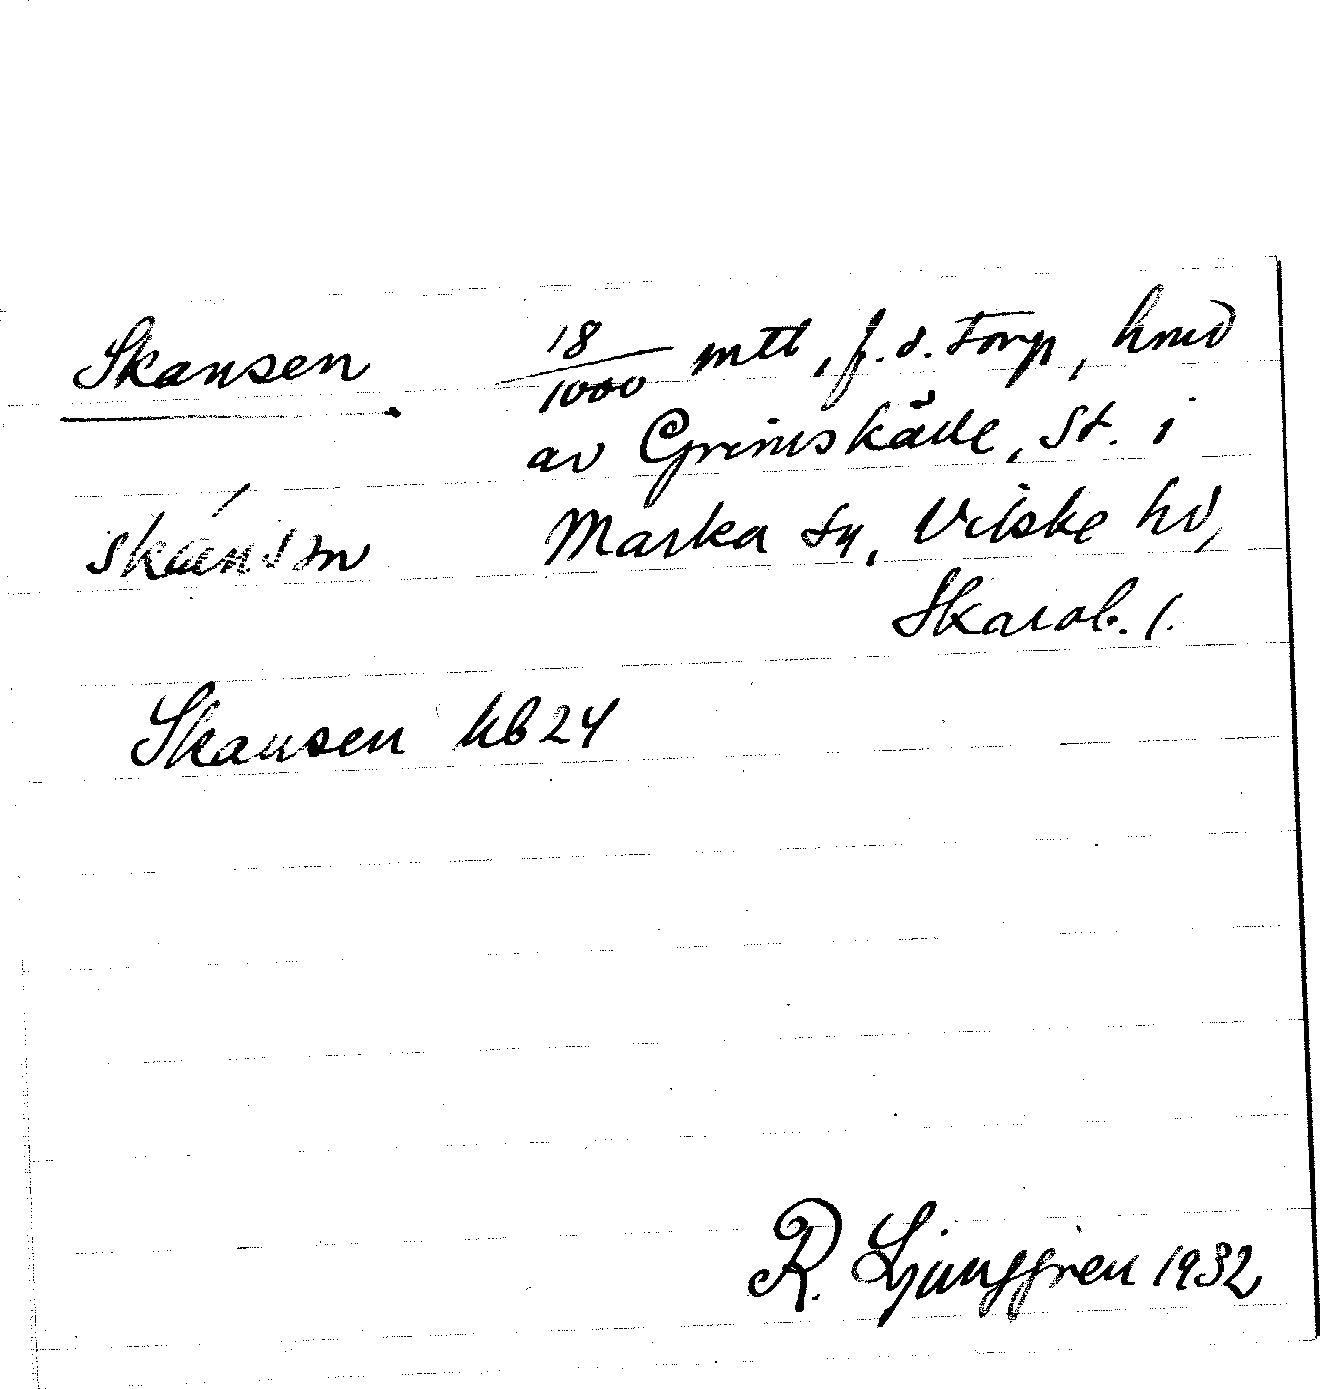 Skansen. 18/1000 mtl, f.d. torp, hmd
av Grimskälle, St. i
skánsm Marka sn, Vilske hd,
Skarab. l.
Skansen kb 24
R. Ljunggren 1932